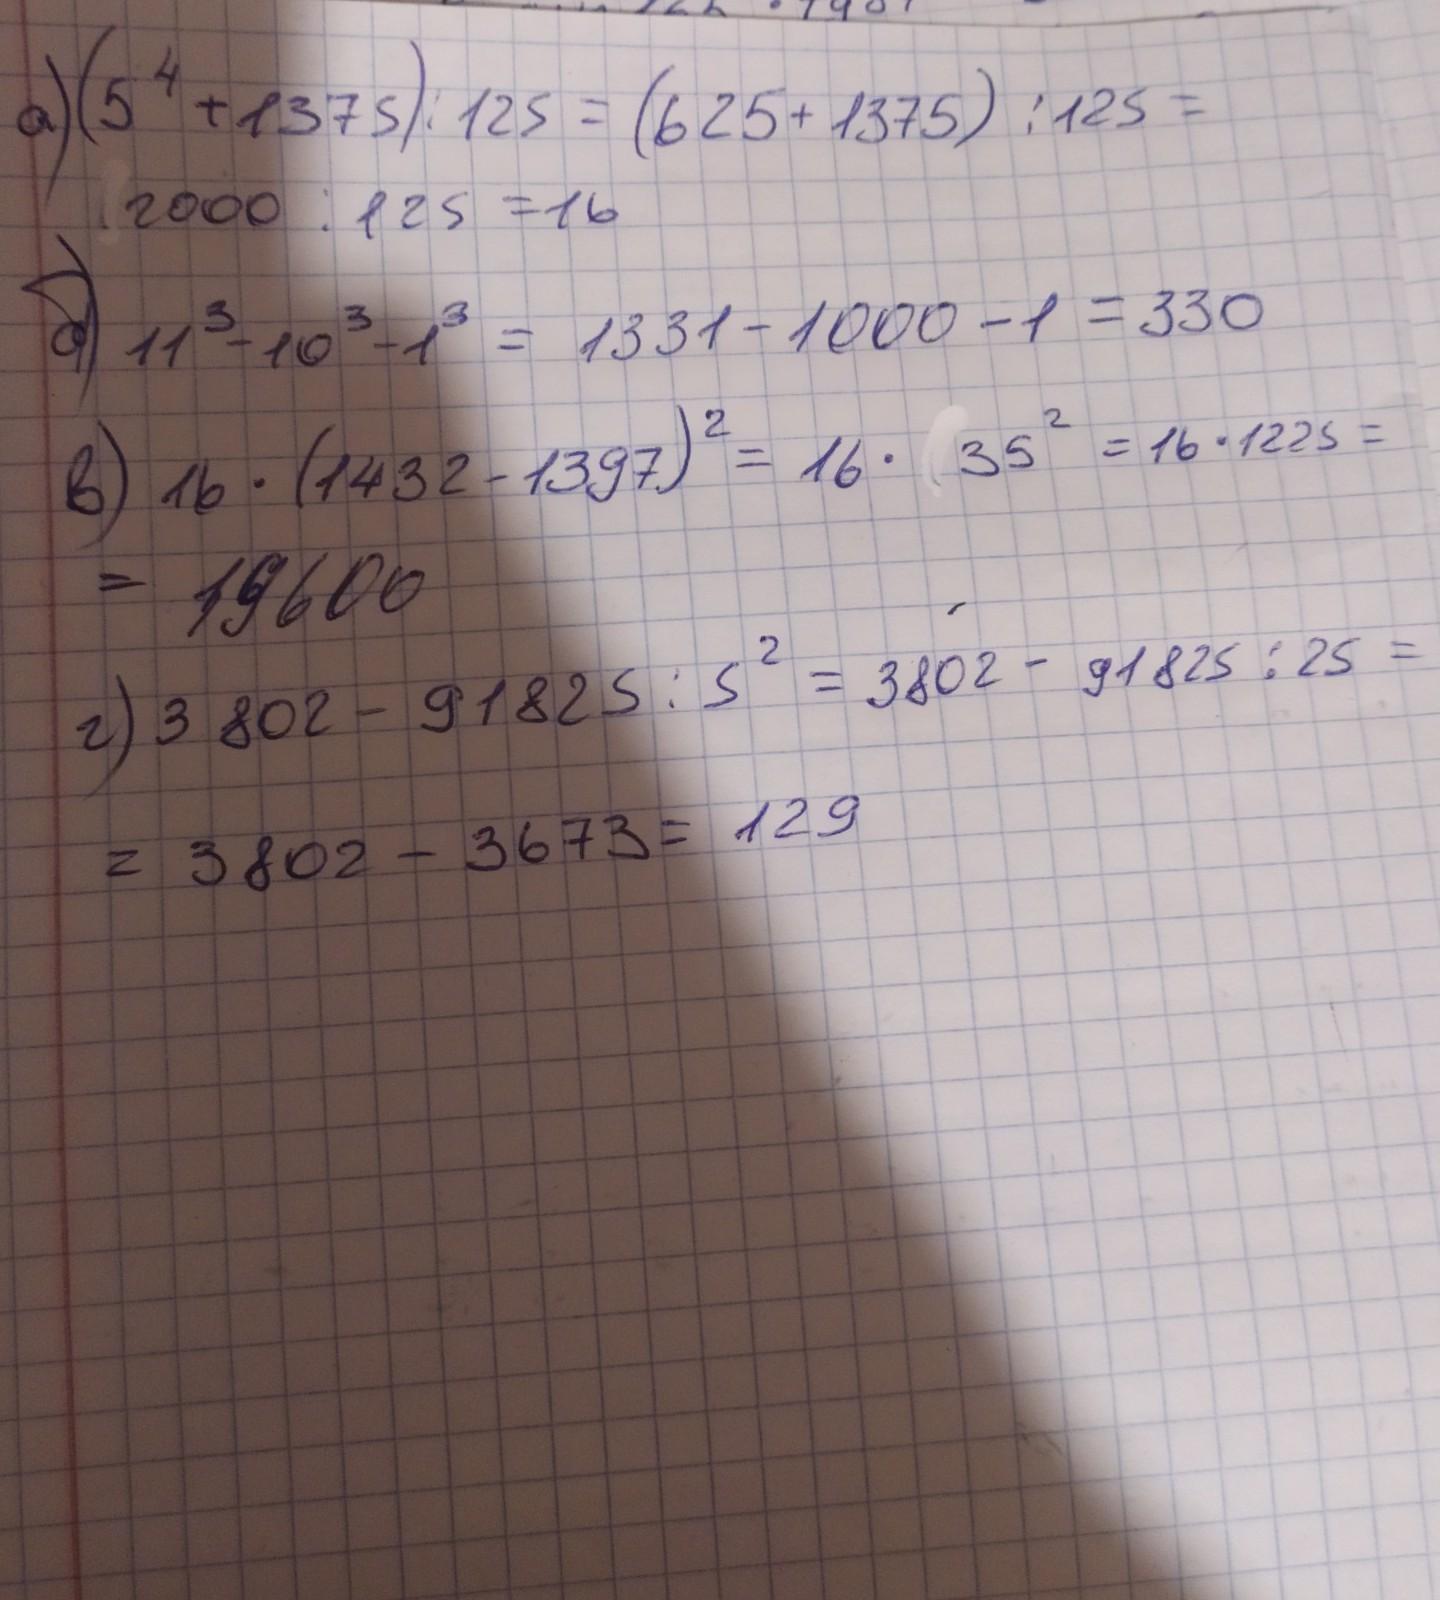 а) (5⁴ + 1375) : 125 = (625 + 1375) : 125 =
2000 : 125 = 16
б) 11³ - 10³ - 1³ = 1331 - 1000 - 1 = 330
в) 16 · (1432 - 1397)² = 16 · 35² = 16 · 1225 =
= 19600
г) 3802 - 91825 : 5² = 3802 - 91825 : 25 =
= 3802 - 3673 = 129